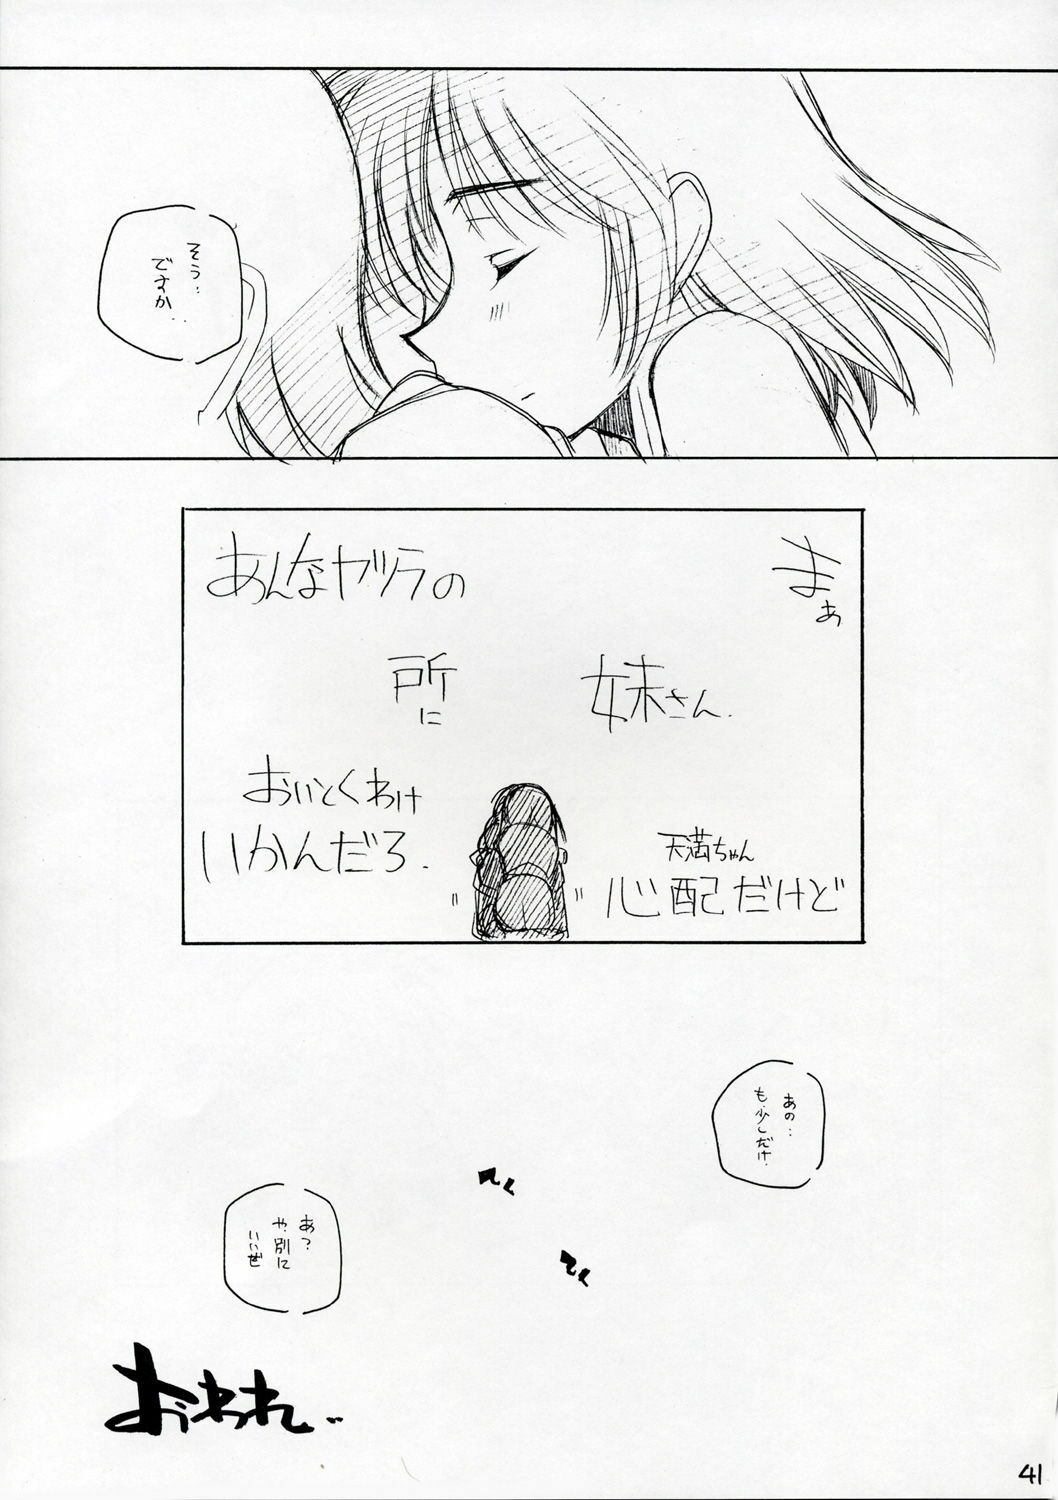 そう‥
ですか‥
まぁ
妹さん.
天満ちゃん
心配だけど
あんなヤツラの
所に
おいとくわけ
いかんだろ.
あの‥
も.少しだけ.
てく
てく
あ?
や.別に
いいぜ
おわれ‥
41